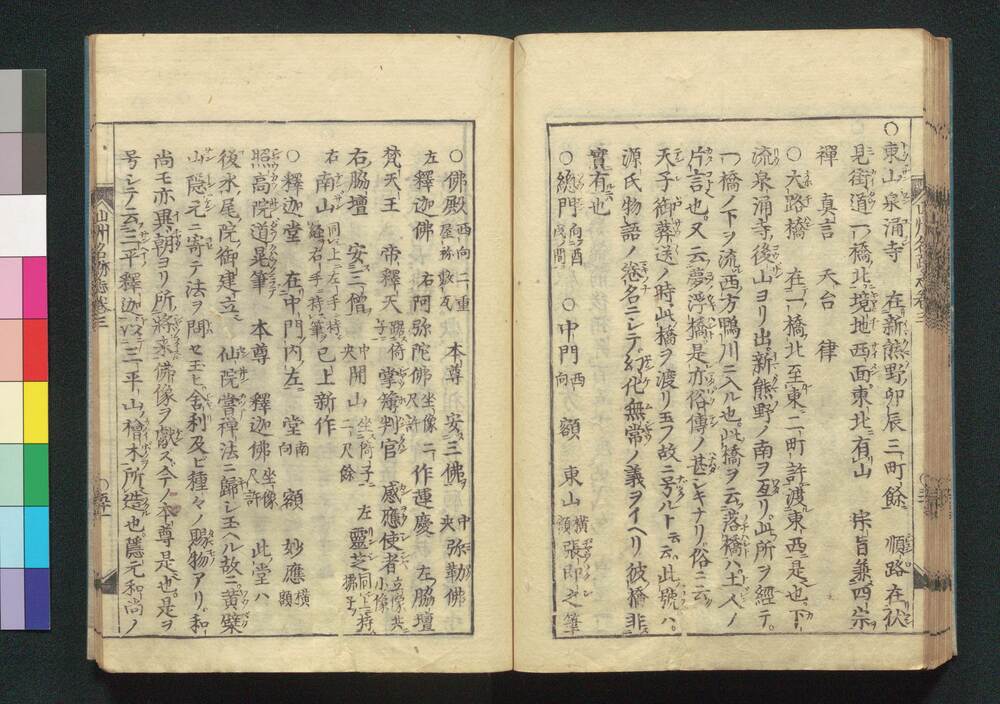 ○東山泉涌寺 在新熊野卯辰三町餘 順路在伏
見街道一橋北境地西面東北有山 宗旨兼四宗
禪 真言 天台 律
○大路橋 在一橋北至東二町許渡東西是也下
流泉涌寺後山ヨリ出新熊野ノ南ヲ亙リ此所ヲ經テ
一橋ノ下ヲ流西方鴨川ニ入ル也此橋ヲ云落橋ハ土人ノ
片言也又云夢浮橋是亦俗傳ノ甚シキナリ俗ニ云
天子御葬送ノ時此橋ヲ渡リ玉フ故ニ号ルト云云此號ハ
源氏物語ノ卷名ニシテ幻化無常ノ義ヲイヘリ彼橋非
實有也
○總門 向酉戌間 ○中門 西向 額 東山 横額 張即之筆
○佛殿 西向二重屋祢敷瓦 本尊 安三佛 中央 弥勒佛
左 釋迦佛 右 阿弥陀佛 坐像二尺許 作蓮慶 左脇壇
梵天王 帝釋天 踞倚子 掌簿判官 感應使者 立像共小像
右脇壇 安三僧 中央 開山 坐倚子二尺餘 左 靈芝 同上持拂子
右 南山 同上左手持經右手持筆 已上新作
○釋迦堂 在中門内左 堂南向 額 妙應 横額
照高院道晃筆 本尊 釋迦佛 坐像尺許 此堂ハ
後水尾院御建立 仙院嘗禪法ニ歸シ玉ヘル故ニ黄檗
山隱元ニ寄テ法ヲ問セ玉ヒ舍利及ヒ種々ノ賜物アリ和
尚モ亦異朝ヨリ所將來佛像ヲ獻ス今ノ本尊是也是ヲ
号シテ云三平釋迦三平山檜木所造也隱元和尚ノ
山州名跡志卷三